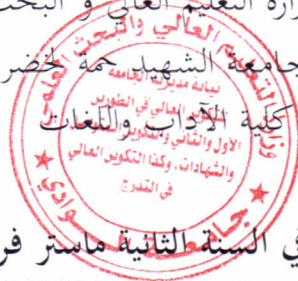 وزارة التعليم العالي و البحث
جامعة الشهيد حمة لخضر
كلية الآداب واللغات
وزارة التعليم العالي والبحث العلمي
نيابة مديرية الجامعة
للتكوين العالي في الطورين
الأول والثاني والتكوين
والشهادات، وكذا التكوين العالي
في التدرج
في السنة الثانية ماستر